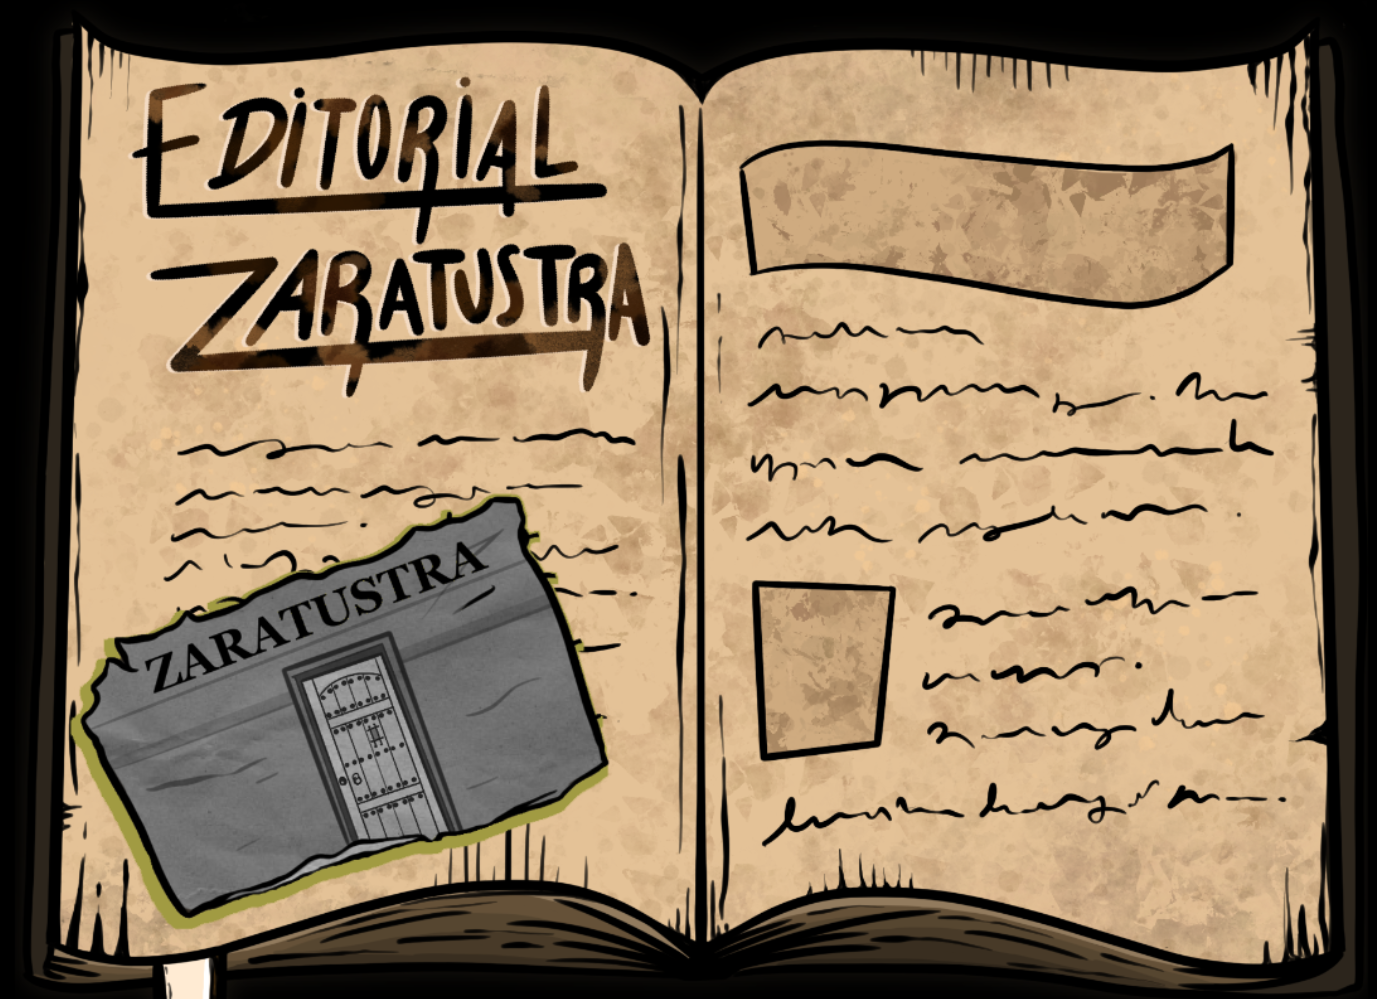 EDITORIAL
ZARATUSTRA
ZARATUSTRA